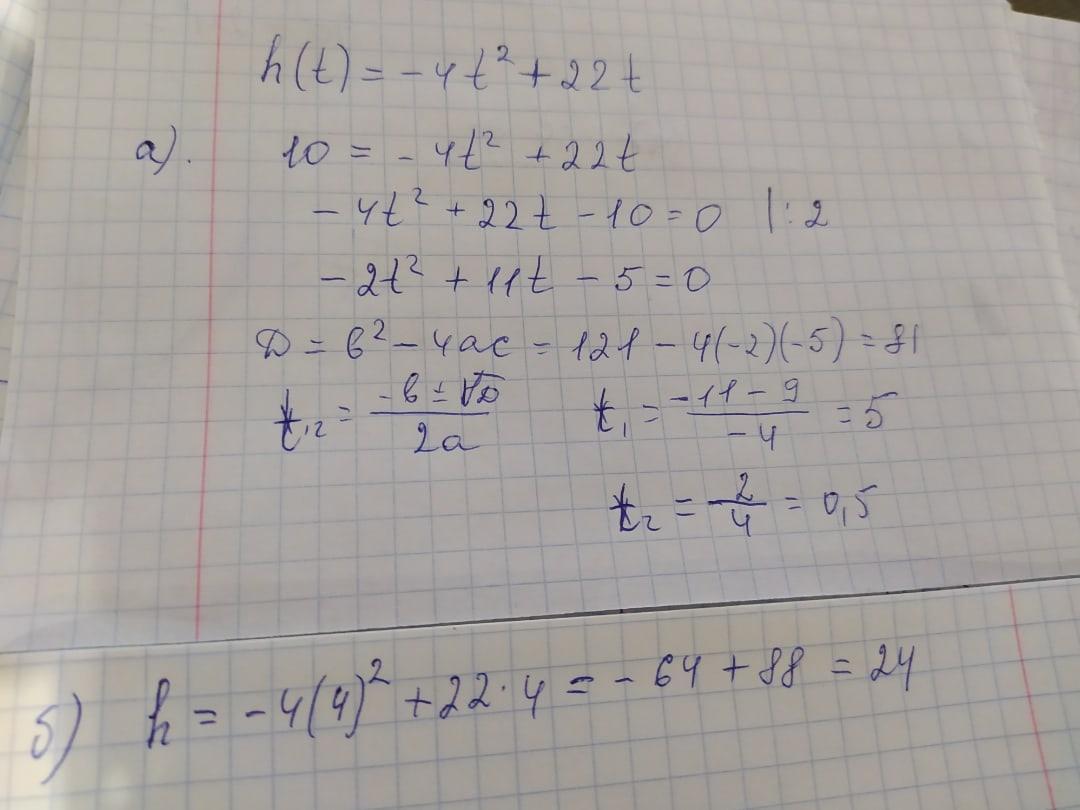 h(t) = -4t² + 22t
а). 10 = -4t² + 22t
-4t² + 22t - 10 = 0 |:2
-2t² + 11t - 5 = 0
D = b² - 4ac = 121 - 4(-2)(-5) = 81
t₁,₂ = (-b ± √D)/(2a) t₁ = (-11 - 9)/(-4) = 5
t₂ = -2/4 = 0,5
б) h = -4(4)² + 22·4 = -64 + 88 = 24